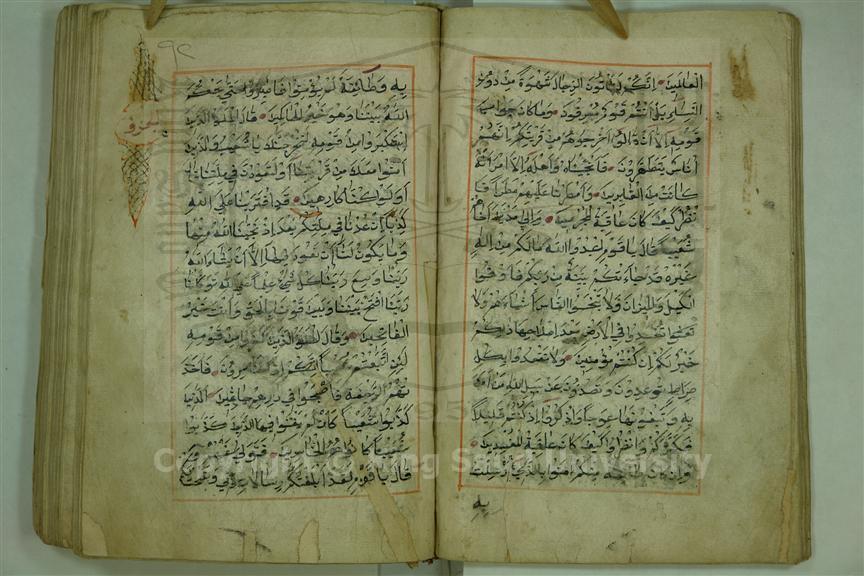 العالمين انكم لتاتون الرجال شهوة من دون
النساء بل انتم قوم مسرفون وما كان جواب
قومه الا ان قالوا اخرجوهم من قريتكم انهم
اناس يتطهرون فانجيناه واهله الا امراته
كانت من الغابرين وامطرنا عليهم مطرا فا
نظر كيف كان عاقبة المجرمين والى مدين اخاهم
شعيبا قال يا قوم اعبدوا الله مالكم من اله
غيره قد جاءتكم بينة من ربكم فاوفوا
الكيل والميزان ولا تبخسوا الناس اشياءهم ولا
تفسدوا في الارض بعد اصلاحها ذلكم
خير لكم ان كنتم مؤمنين ولا تقعدوا بكل
صراط توعدون وتصدون عن سبيل الله من امن
به وتبغونها عوجا واذكروا اذ كنتم قليلا
فكثركم وانظروا كيف كان عاقبة المفسدين
وان كان طائفة منكم امنوا بالذي ارسلت
به
٩٢
به وطائفة لم يؤمنوا فاصبروا حتى يحكم
الله بيننا وهو خير الحاكمين قال الملا الذين
استكبروا من قومه لنخرجنك يا شعيب والذين
امنوا معك من قريتنا او لتعودن في ملتنا قال
اولو كنا كارهين قد افترينا على الله
كذبا ان عدنا في ملتكم بعد اذ نجينا الله منها
وما يكون لنا ان نعود فيها الا ان يشاء الله
ربنا وسع ربنا كل شيء علما على الله توكلنا
ربنا افتح بيننا وبين قومنا بالحق وانت خير
الفاتحين وقال الملا الذين كفروا من قومه
لئن اتبعتم شعيبا انكم اذا لخاسرون فاخذ
تهم الرجفة فاصبحوا في دارهم جاثمين الذين
كذبوا شعيبا كان لم يغنوا فيها الذين كذبوا
شعيبا كانوا هم الخاسرين فتولى عنهم و
قال يا قوم لقد ابلغتكم رسالات ربي ونصحت
Copyright © King Saud University